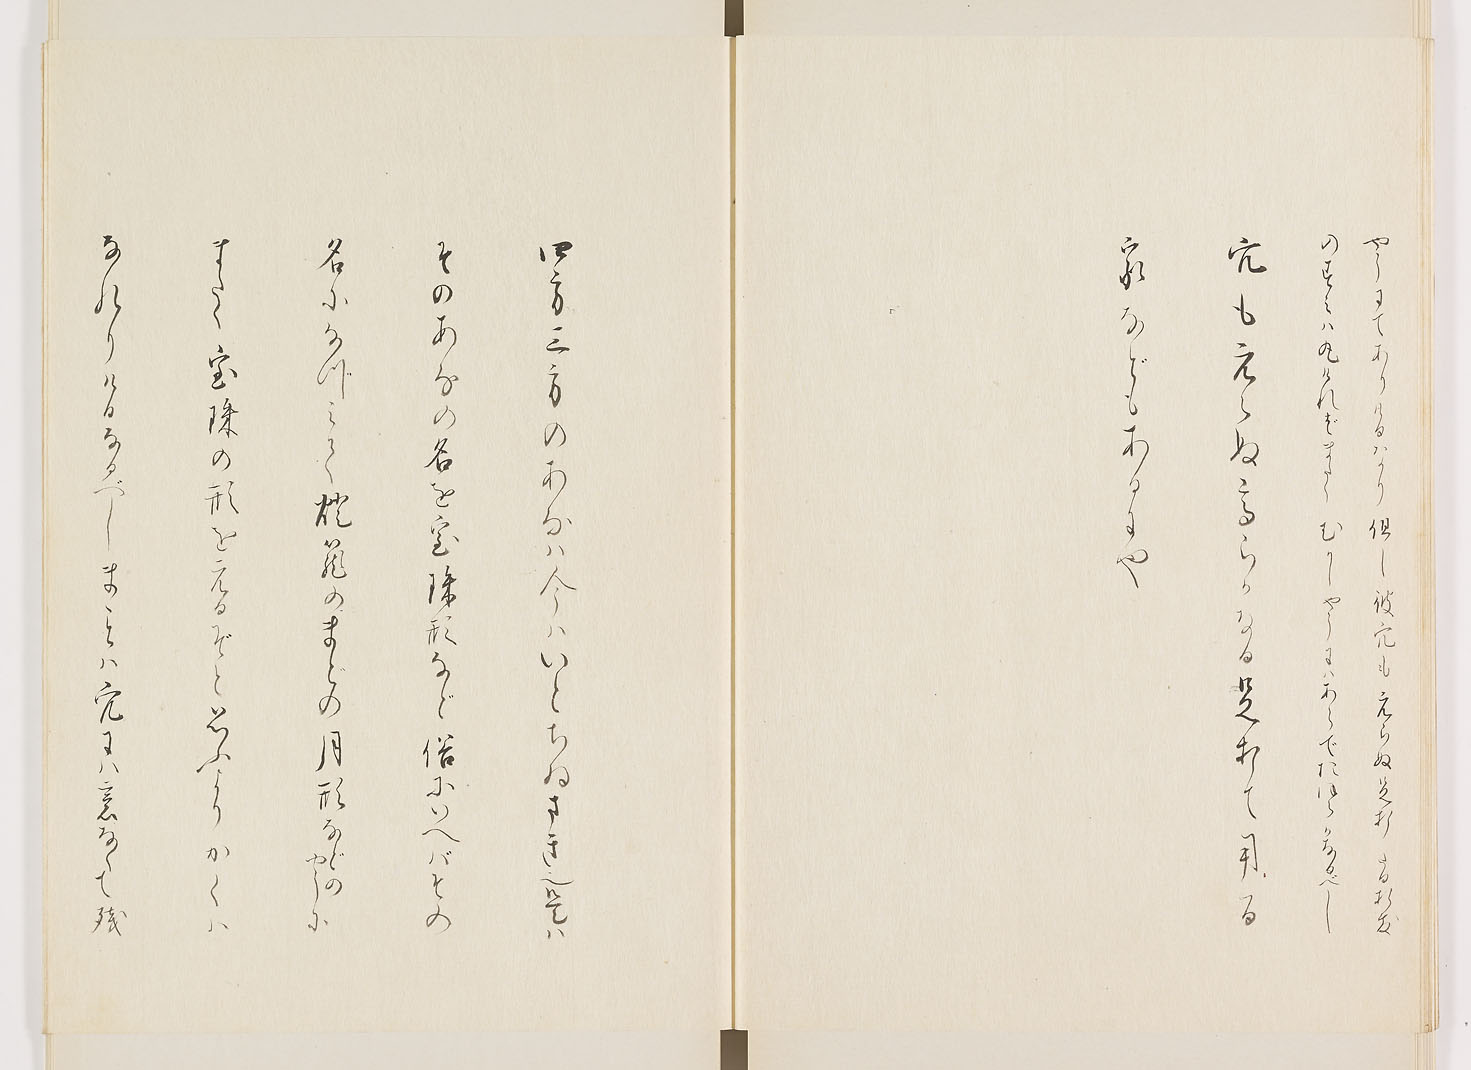 やうにてありけるハより 但し 彼穴も えらぬ足打
のすミハ丸けれどまたく むかしやうにハあらでおほらかなるべし
穴もえらぬ高らかなる足打て用る
家などもあるにや
四方三方のあなハ今ハいとちひさきに是ハ
そのあなの名を宝珠形など俗にいへバその
名になづミて燈籠のまどの月形などのやうに
またく宝珠の形をえるぞと思ふより かくハ
なれりけるなるべし まことハ穴にハ意なくて残